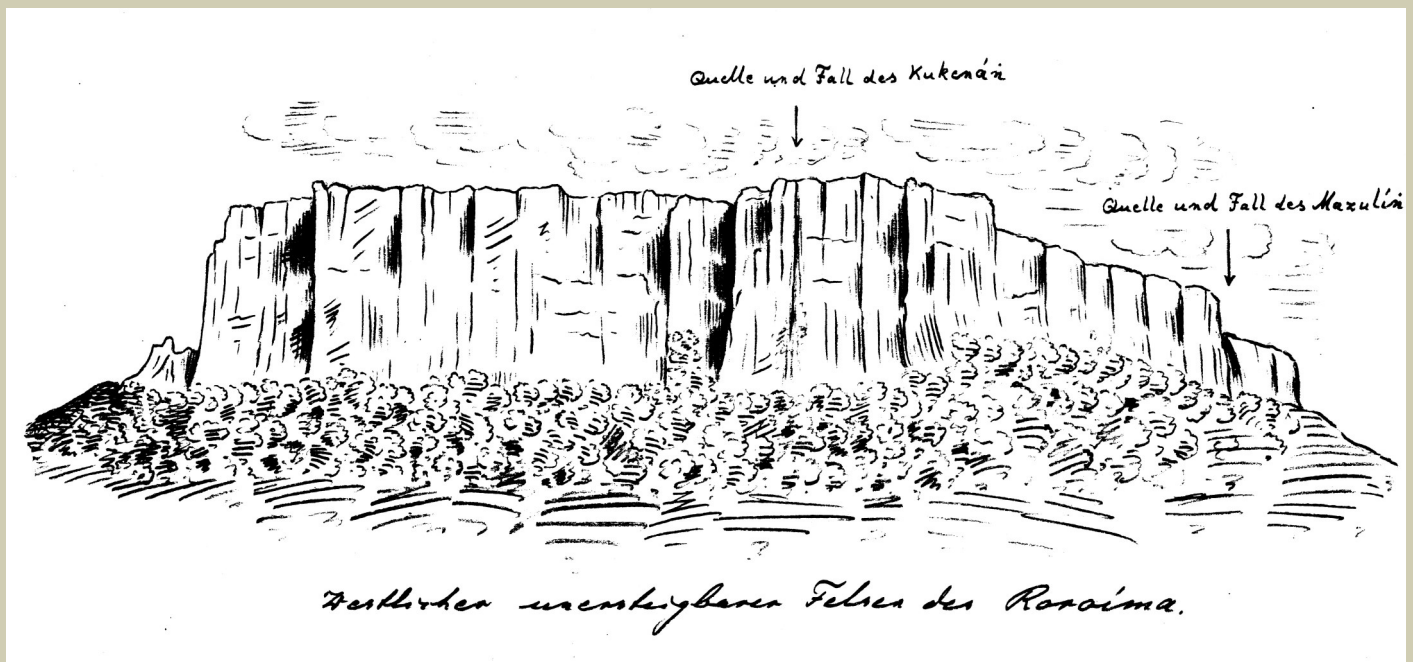 Quelle und Fall des Kukenán
Quelle und Fall des Mazulín
Westlicher unersteigbarer Felsen des Roroima.